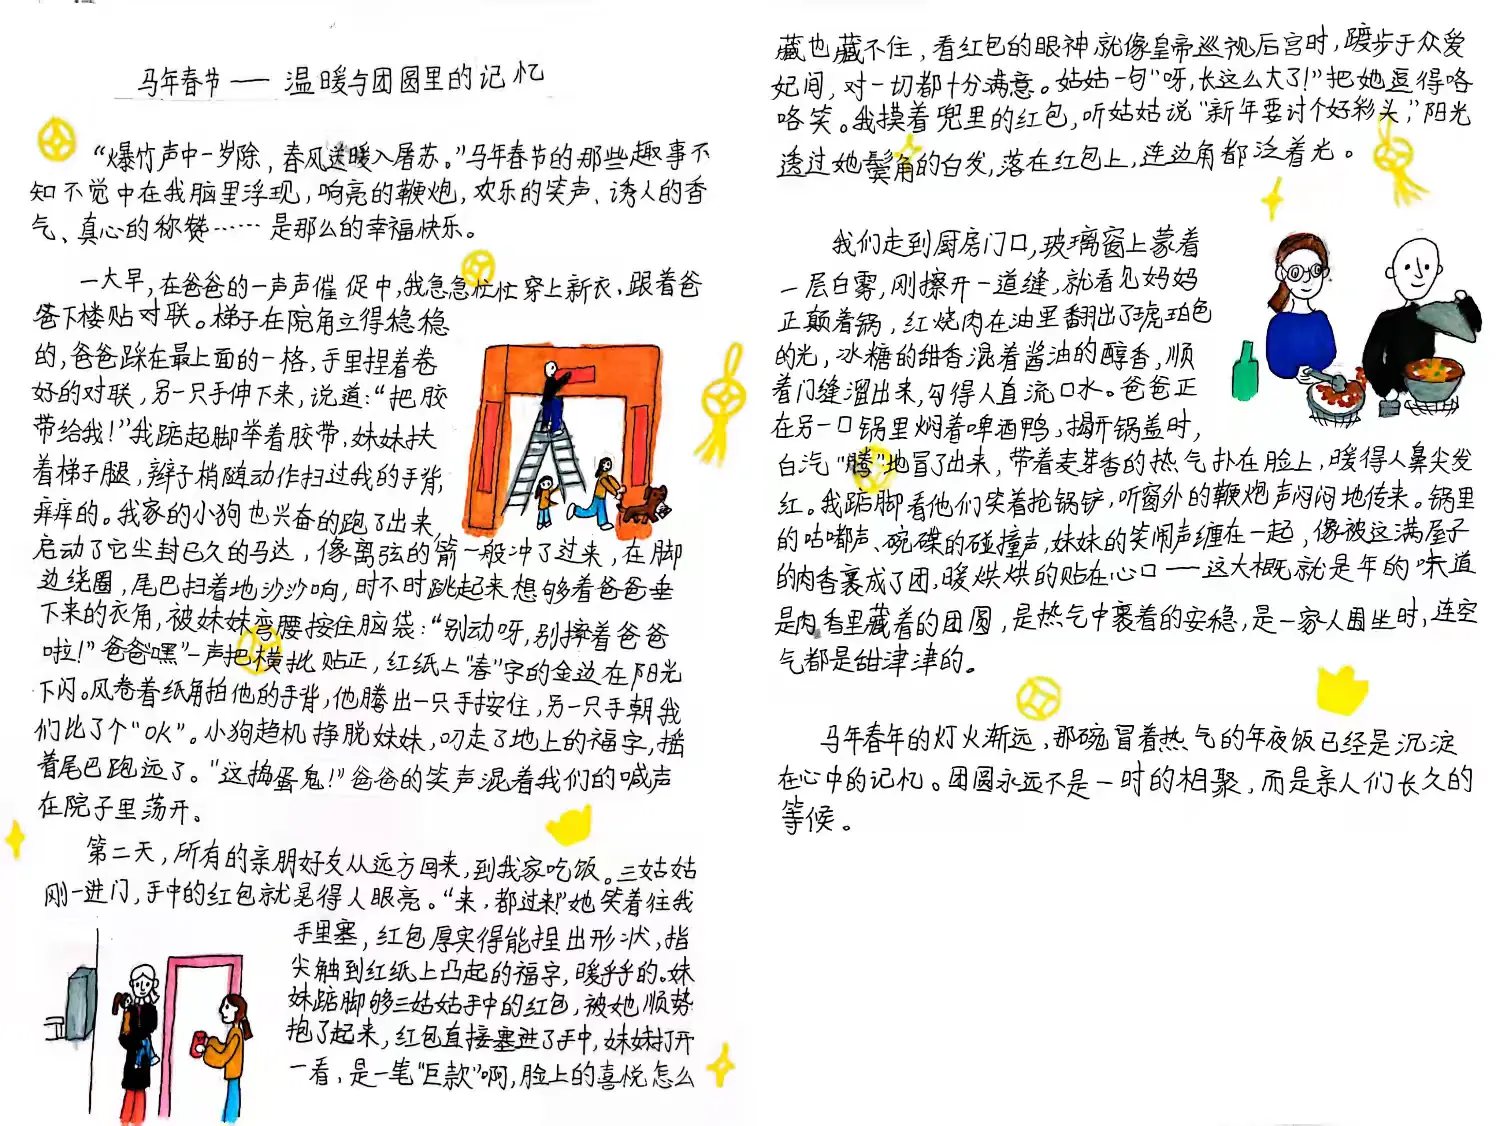 马年春节——温暖与团圆里的记忆
“爆竹声中一岁除，春风送暖入屠苏。”马年春节的那些趣事不
知不觉中在我脑里浮现，响亮的鞭炮，欢乐的笑声、诱人的香
气、真心的称赞……是那么的幸福快乐。
一大早，在爸爸的一声声催促中，我急急忙忙穿上新衣，跟着爸
爸下楼贴对联。梯子在院角立得稳稳
的，爸爸踩在最上面的一格，手里捏着卷
好的对联，另一只手伸下来，说道：“把胶
带给我！”我踮起脚举着胶带，妹妹扶
着梯子腿，辫子梢随动作扫过我的手背，
痒痒的。我家的小狗也兴奋的跑了出来，
启动了它尘封已久的马达，像离弦的箭一般冲了过来，在脚
边绕圈，尾巴扫着地沙沙响，时不时跳起来想够着爸爸垂
下来的衣角，被妹妹弯腰按住脑袋：“别动呀，别撞着爸爸
啦！”爸爸“嘿”一声把横批贴正，红纸上“春”字的金边在阳光
下闪。风卷着纸角拍他的手背，他腾出一只手按住，另一只手朝我
们比了个“OK”。小狗趁机挣脱妹妹，叼走了地上的福字，摇
着尾巴跑远了。“这捣蛋鬼！”爸爸的笑声混着我们的喊声
在院子里荡开。
第二天，所有的亲朋好友从远方回来，到我家吃饭。三姑姑
刚一进门，手中的红包就晃得人眼亮。“来，都过来！”她笑着往我
手里塞，红包厚实得能捏出形状，指
尖触到红纸上凸起的福字，暖乎乎的。妹
妹踮脚够三姑姑手中的红包，被她顺势
抱了起来，红包直接塞进了手中，妹妹打开
一看，是一笔“巨款”啊，脸上的喜悦怎么
藏也藏不住，看红包的眼神就像皇帝巡视后宫时，踱步于众爱
妃间，对一切都十分满意。姑姑一句“呀，长这么大了！”把她逗得咯
咯笑。我摸着兜里的红包，听姑姑说“新年要讨个好彩头，”阳光
透过她鬓角的白发，落在红包上，连边角都泛着光。
我们走到厨房门口，玻璃窗上蒙着
一层白雾，刚擦开一道缝，就看见妈妈
正颠着锅，红烧肉在油里翻出了琥珀色
的光，冰糖的甜香混着酱油的醇香，顺
着门缝溜出来，勾得人直流口水。爸爸正
在另一口锅里焖着啤酒鸭，揭开锅盖时，
白汽“腾”地冒了出来，带着麦芽香的热气扑在脸上，暖得人鼻尖发
红。我踮脚看他们笑着抢锅铲，听窗外的鞭炮声闷闷地传来。锅里
的咕嘟声、碗碟的碰撞声，妹妹的笑闹声缠在一起，像被这满屋子
的肉香裹成了团，暖烘烘的贴在心口——这大概就是年的味道
是肉香里藏着的团圆，是热气中裹着的安稳，是一家人围坐时，连空
气都是甜津津的。
马年春年的灯火渐远，那碗冒着热气的年夜饭已经是沉淀
在心中的记忆。团圆永远不是一时的相聚，而是亲人们长久的
等候。